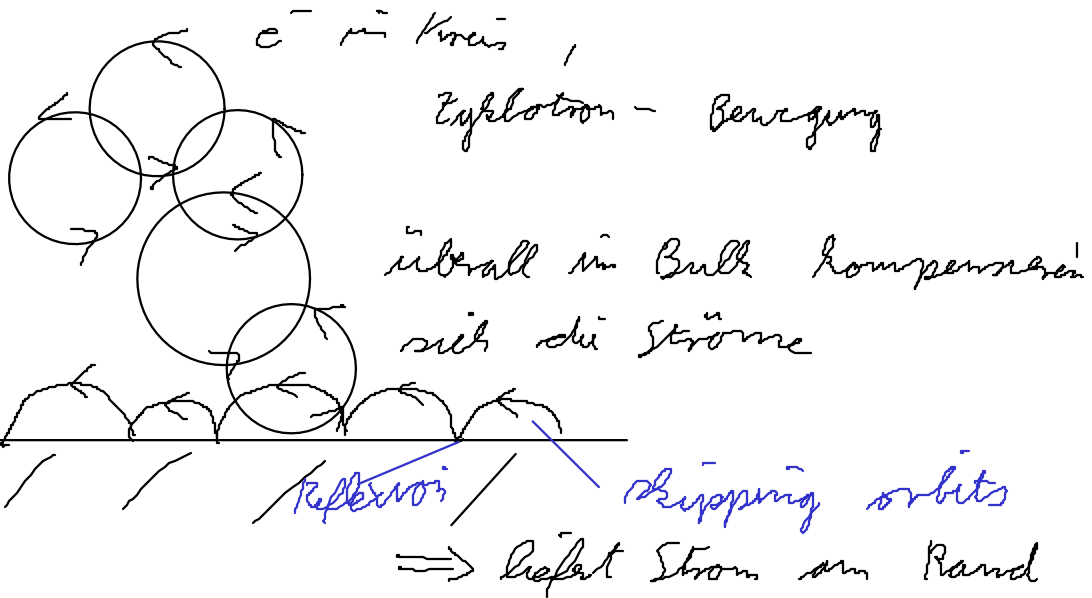 e⁻ im Kreis,
Zyklotron-Bewegung
überall im Bulk kompensieren
sich die Ströme
Reflexion
skipping orbits
⇒ liefert Strom am Rand